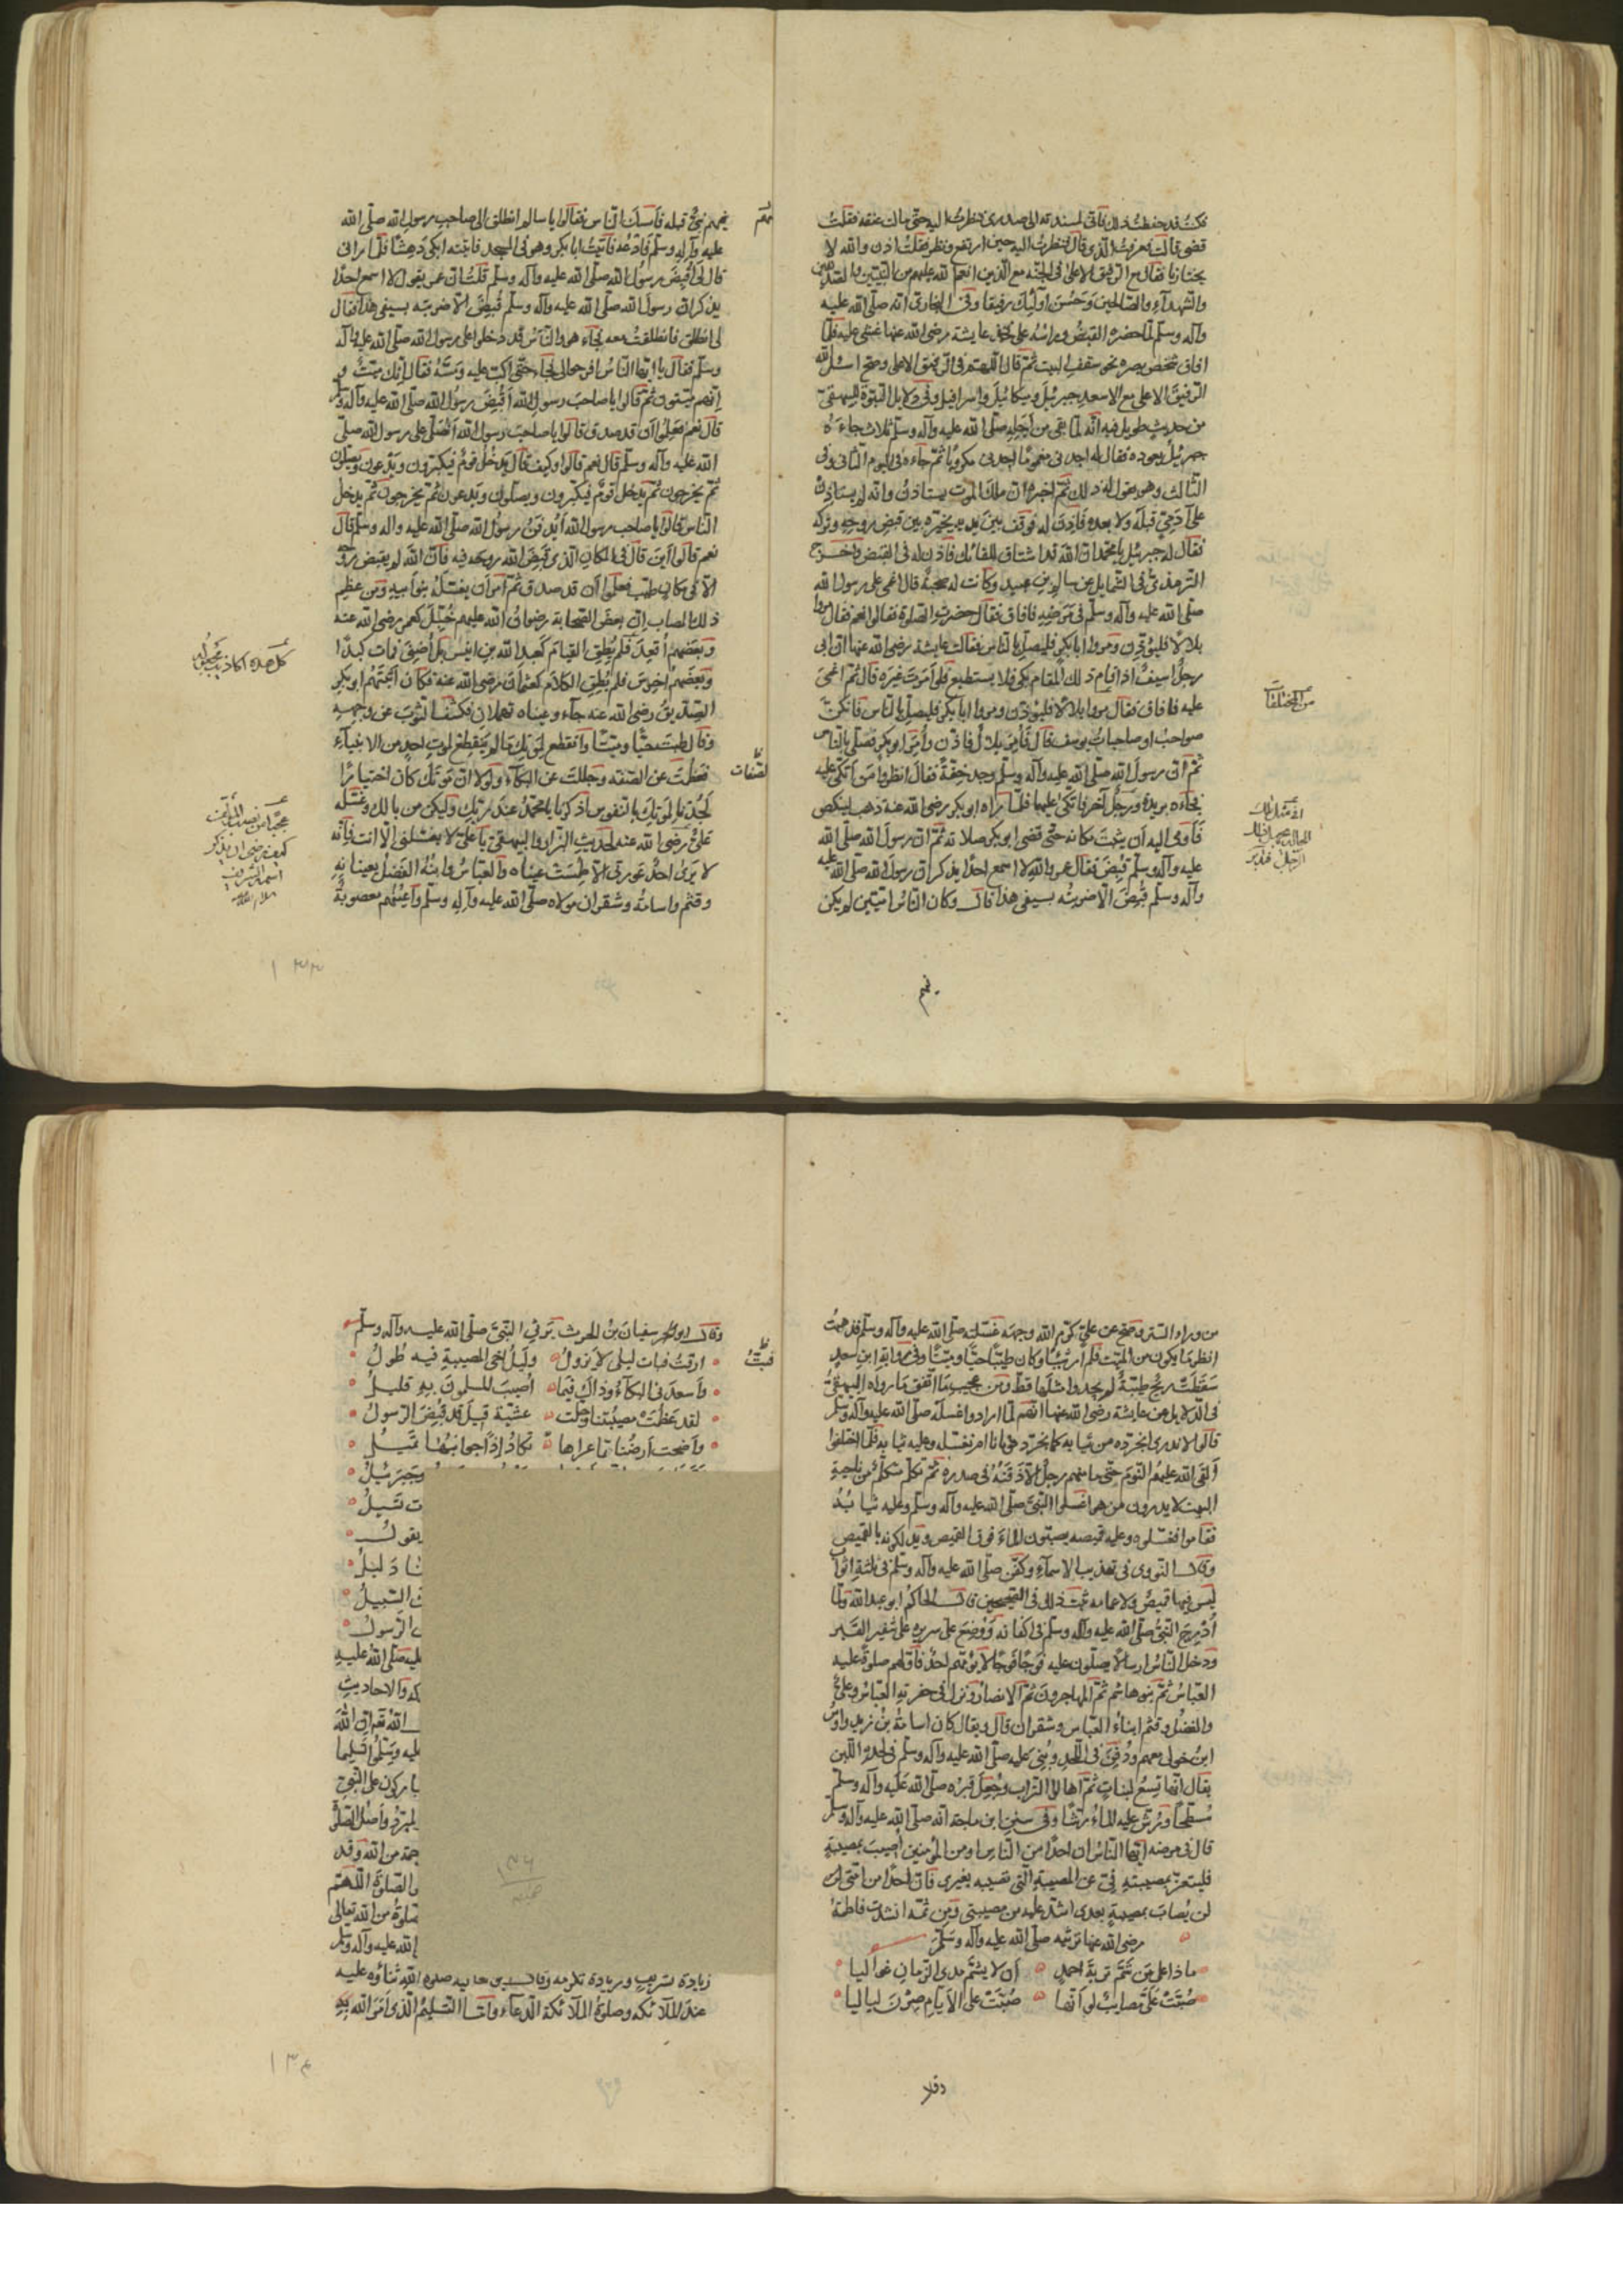 فكنت قد حفظت ذلك فاني لمسندته الى صدري فنظرت اليه حتى مالت عنقه فقلت
قضى قالت فعرفت الذي قال فنظرت اليه حين ارتفع ونظر فقلت اذن والله لا
يختارنا فقال مع الرفيق الاعلى في الجنة مع الذين انعم الله عليهم من النبيين والصديقين
والشهدآء والصالحين وحسن اولئك رفيقا وفي البخاري انه صلى الله عليه
وآله وسلم لما حضره القبض وراسه على فخذ عايشة رضي الله عنها غشي عليه فلما
افاق شخص بصره نحو سقف البيت ثم قال اللهم في الرفيق الاعلى وصح اسئل الله
الرفيق الاعلى مع الاسعد جبرئيل وميكائيل واسرافيل وفي دلايل النبوة للبيهقي
من حديث طويل فيه انه لما بقي من اجله صلى الله عليه وآله وسلم ثلاث جاءه
جبرئيل يعوده فقال له اجدني مغموما اجدني مكروبا ثم جاءه في اليوم الثاني وفي
الثالث وهو يقول له ذلك ثم اخبره ان ملك الموت يستاذن وانه لم يستاذن
على آدمي قبله ولا بعده فاذن له فوقف بين يديه يخيره بين قبض روحه وتركه
فقال له جبرئيل يا محمد ان الله قد اشتاق للقائك فاذن له في القبض واخرج
الترمذي في الشمايل عن سالم بن عبيد وكانت له صحبة قال اغمي على رسول الله
صلى الله عليه وآله وسلم في مرضه فافاق فقال حضرت الصلوة فقالوا نعم فقال مروا
بلالا فليؤذن ومروا ابا بكر فليصل بالناس فقالت عايشة رضي الله عنها ان ابي
رجل اسيف اذا قام ذلك المقام بكى فلا يستطيع فلو امرت غيره قال ثم اغمي
عليه فافاق فقال مروا بلالا فليؤذن ومروا ابا بكر فليصل بالناس فانكن
صواحب او صاحبات يوسف قال فأمر بلال فاذن وأمر ابو بكر فصلى بالناس
ثم ان رسول الله صلى الله عليه وآله وسلم وجد خفة فقال انظروا من اتكئ عليه
فجاءه بريدة ورجل آخر فاتكئ عليهما فلما راه ابو بكر رضي الله عنه ذهب لينكص
فأومى اليه أن يثبت مكانه حتى قضى ابو بكر صلاته ثم ان رسول الله صلى الله
عليه وآله وسلم قبض فقال عمر والله لا اسمع احدا يذكر ان رسول الله صلى الله عليه
وآله وسلم قبض الا ضربته بسيفي هذا قال وكان الناس اميين لم يكن
فيهم
فيهم نبي قبله فامسك الناس فقالوا يا سالم انطلق الى صاحب رسول الله صلى الله
عليه وآله وسلم فادعه فاتيت ابا بكر وهو في المسجد فاتيته ابكي دهشا فلما راني
قال لي اقبض رسول الله صلى الله عليه وآله وسلم قلت ان عمر يقول لا اسمع احدا
يذكر ان رسول الله صلى الله عليه وآله وسلم قبض الا ضربته بسيفي هذا فقال
لي انطلق فانطلقت معه فجاء هو والناس قد دخلوا على رسول الله صلى الله عليه وآله
وسلم فقال يا ايها الناس افرجوا لي فجاء حتى اكب عليه ومسه فقال انك ميت و
إنهم ميتون ثم قالوا يا صاحب رسول الله أقبض رسول الله صلى الله عليه وآله وسلم
قال نعم فعلموا أن قد صدق قالوا يا صاحب رسول الله أنصلي على رسول الله صلى
الله عليه وآله وسلم قال نعم قالوا وكيف قال يدخل قوم فيكبرون ويدعون ويصلون
ثم يخرجون ثم يدخل قوم فيكبرون ويصلون ويدعون ثم يخرجون ثم يدخل
الناس قالوا يا صاحب رسول الله أيدفن رسول الله صلى الله عليه واله وسلم قال
نعم قالوا اين قال في المكان الذي قبض الله روحه فيه فان الله لم يقبض روحه
الا في مكان طيب فعلموا أن قد صدق ثم أمر أن يغسله بنو أبيه ومن عظيم
ذلك المصاب ان بعض الصحابة رضوان الله عليهم خبل كعمر رضي الله عنه
وبعضهم أقعد فلم يطق القيام كعبد الله بن انيس بل أضنى فمات كمدا
وبعضهم أخرس فلم يطق الكلام كعثمان رضي الله عنه فكان اثبتهم ابو بكر
الصديق رضي الله عنه جآء وعيناه تهملان فكشف الثوب عن وجهه
وقال طبت حيا وميتا وانقطع لموتك ما لم ينقطع لموت احد من الانبيآء
فعظمت عن الصفة وجللت عن البكآء ولو لا ان موتك كان اختيارا
لجدنا لموتك بالنفوس اذكرنا يا محمد عند ربك وليكن من بالك وغسله
علي رضي الله عنه لحديث البزار والبيهقي يا علي لا يغسلني الا انت فانه
لا يرى احد عورتي الا طمست عيناه والعباس وابنه الفضل يعينانه
وقثم واسامة وشقران مولاه صلى الله عليه وآله وسلم وأعينهم معصوبة
كل هذه اكاذيب
١٣٣
من ورآء الستر وصح عن علي كرم الله وجهه غسلته صلى الله عليه وآله وسلم فذهبت
انظر ما يكون من الميت فلم أر شيئا وكان طيبا حيا وميتا وفي رواية ابن سعد
سطعت ريح طيبة لم يجدوا مثلها قط ومن عجيب ما اتفق ما رواه البيهقي
في الدلايل عن عايشة رضي الله عنها انهم لما ارادوا غسله صلى الله عليه وآله وسلم
قالوا لا ندري انجرده من ثيابه كما نجرد موتانا ام نغسله وعليه ثيابه فلما اختلفوا
ألقى الله عليهم النوم حتى ما منهم رجل الا ذقنه في صدره ثم تكلم متكلم من ناحية
البيت لا يدرون من هو اغسلوا النبي صلى الله عليه وآله وسلم وعليه ثيابه
فقاموا فغسلوه وعليه قميصه يصبون المآء فوق القميص ويدلكونه بالقميص
وقال النووي في تهذيب الاسمآء وكفن صلى الله عليه وآله وسلم في ثلثة اثواب
ليس فيها قميص ولا عمامة ثبت ذلك في الصحيحين قال الحاكم ابو عبد الله ولما
أدرج النبي صلى الله عليه وآله وسلم في اكفانه ووضع على سريره على شفير القبر
ودخل الناس ارسالا يصلون عليه فوجا فوجا لا يؤمهم احد فأولهم صلوة عليه
العباس ثم بنو هاشم ثم المهاجرون ثم الانصار ونزل في حفرته العباس وعلي
والفضل وقثم ابناء العباس وشقران قال ويقال كان اسامة بن زيد واوس
ابن خولي معهم ودفن في اللحد وبني عليه صلى الله عليه وآله وسلم في لحده اللبن
يقال انها تسع لبنات ثم أهالوا التراب وجعل قبره صلى الله عليه وآله وسلم
مسطحا ورش عليه المآء رشا وفي سنن ابن ماجة انه صلى الله عليه وآله وسلم
قال في مرضه ايها الناس ان احدا من الناس او من المؤمنين أصيب بمصيبة
فليتعز بمصيبته في عن المصيبة التي تصيبه بغيري فان احدا من امتي
لن يصاب بمصيبة بعدي اشد عليه من مصيبتي ومن ثمة انشدت فاطمة
رضي الله عنها ترثيه صلى الله عليه وآله وسلم
ماذا على من شم تربة احمد أن لا يشم مدى الزمان غواليا
صبت علي مصايب لو انها صبت على الأيام صرن لياليا
وقال
وقال ابو سفيان بن الحرث يرثي النبي صلى الله عليه وآله وسلم
ارقت فبات ليلي لا يزول وليل اخي المصيبة فيه طول
وأسعدني البكآء وذاك فيما أصيب المسلمون به قليل
لقد عظمت مصيبتنا وجلت عشية قيل قد قبض الرسول
وأضحت أرضنا مما عراها تكاد بنا جوانبها تميل
جبرئيل
تسيل
يقول
دليل
السبيل
الرسول
صلى الله عليه
والاحاديث
الله تعالى ان الله
عليه وسلموا تسليما
يباركون على النبي
المبرد وأصل الصلوة
رحمة من الله وقد
والصلوة اللهم
صلوة من الله تعالى
الله عليه وآله وسلم
زيادة تشريف وزيادة تكرمة
عند الملآئكة وصلوة الملآئكة الدعآء وأما التسليم الذي أمر الله به
١٣٤